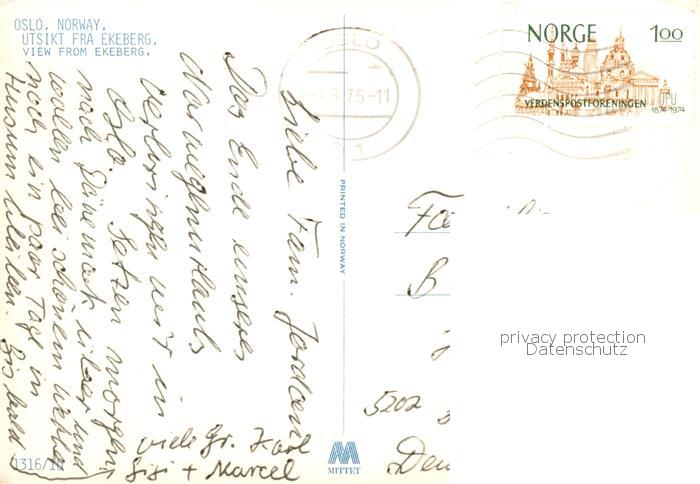 OSLO, NORWAY.
UTSIKT FRA EKEBERG.
VIEW FROM EKEBERG.
Liebe Fam. Jordan
Das Ende unseres
Norwegenurlaubs
verbringen wir in
Oslo. Setzen morgen
nach Dänemark über und
wollen bei schönem Wetter
noch ein paar Tage in
Husum bleiben. Bis bald
viele Gr. Karl
Gigi + Marcel
1316/10
PRINTED IN NORWAY
MITTET
OSLO
75-11
NORGE
100
VERDENSPOSTFORENINGEN
UPU
1874-1974
Fa
B
5202
Deu
privacy protection
Datenschutz